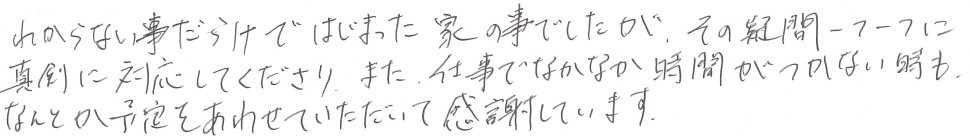 わからない事だらけではじまった家の事でしたが、その疑問一つ一つに
真剣に対応してくださり、また、仕事でなかなか時間がつかない時も、
なんとか予定をあわせていただいて感謝しています。